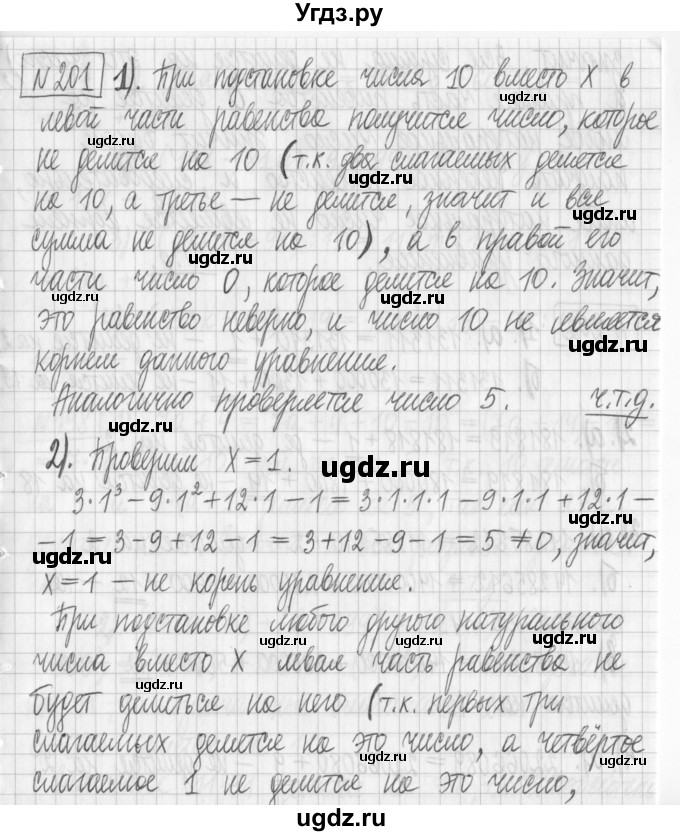 Угдз.ру
№201 1). При подстановке числа 10 вместо X в
левой части равенства получится число, которое
не делится на 10 (т.к. два слагаемых делятся
на 10, а третье — не делится, значит и вся
сумма не делится на 10), а в правой его
части число 0, которое делится на 10. Значит,
это равенство неверно, и число 10 не является
корнем данного уравнения.
Аналогично проверяется число 5. ч.т.д.
2). Проверим X=1.
3·1³−9·1²+12·1−1=3·1·1·1−9·1·1+12·1−
−1=3−9+12−1=3+12−9−1=5≠0, значит,
X=1 — не корень уравнения.
При подстановке любого другого натурального
числа вместо X левая часть равенства не
будет делиться на него (т.к. первых три
слагаемых делятся на это число, а четвёртое
слагаемое 1 не делится на это число,
ugdz.ru